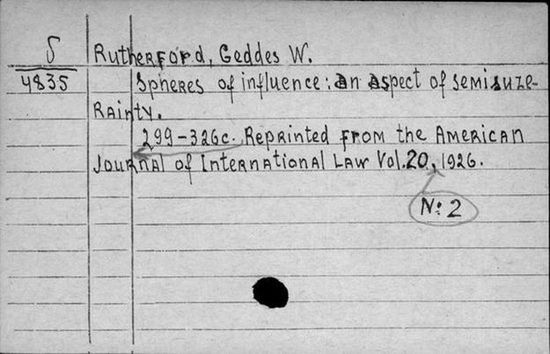 S
4835
Rutherford, Geddes W.
Spheres of influence: an aspect of semisuze-
rainty.
299-326c. Reprinted from the American
Journal of International Law Vol. 20, 1926.
N: 2